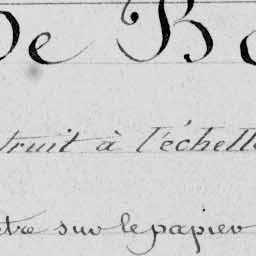 De B
truit à l'échelle
tre sur le papier